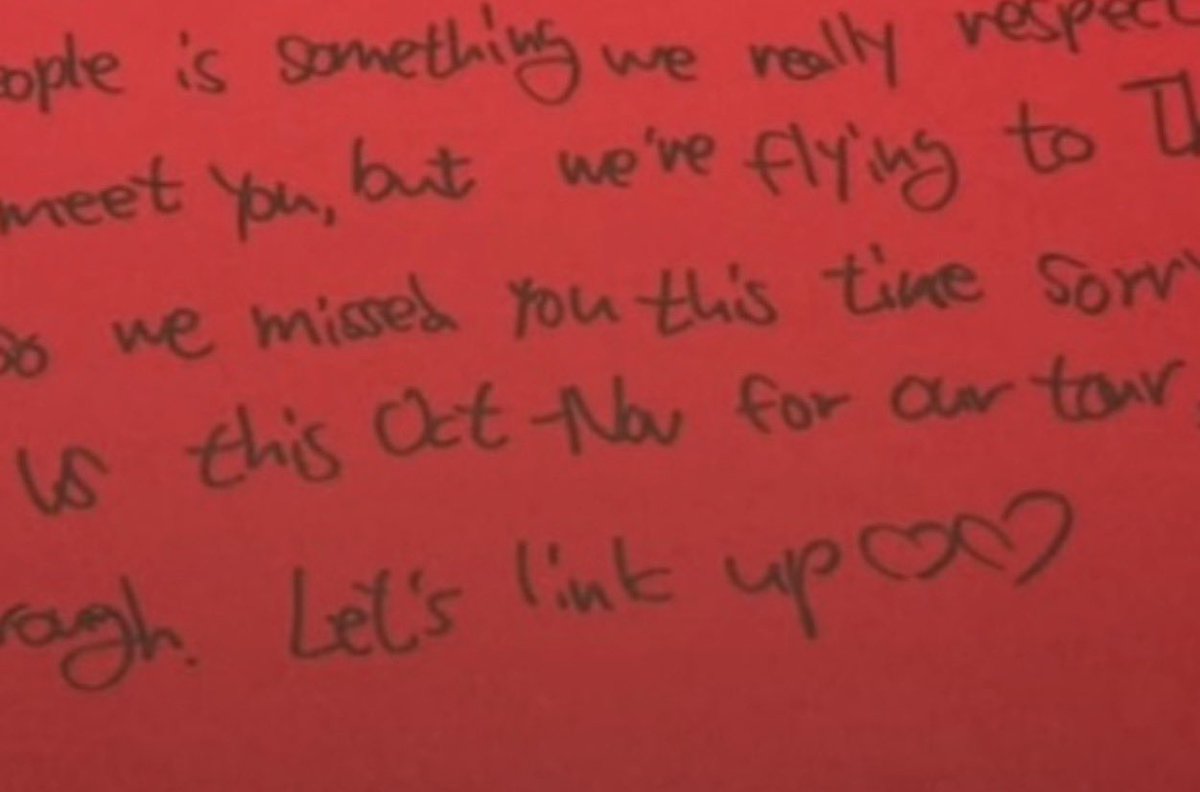 eople is something we really respect
meet you, but we're flying to
so we missed you this time sorry
us this Oct-Nov for our tour,
rough. Let's link up♡♡